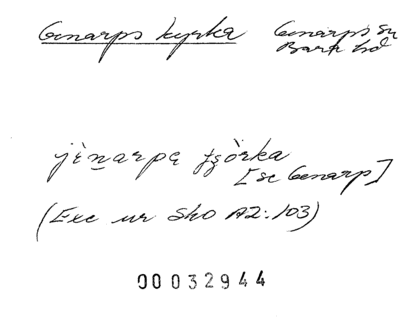 Genarps kyrka Genarps sn
Bara hd
jènarpę ȶʂòrka
[se Genarp]
(Exc ur SkO A2:103)
00032944